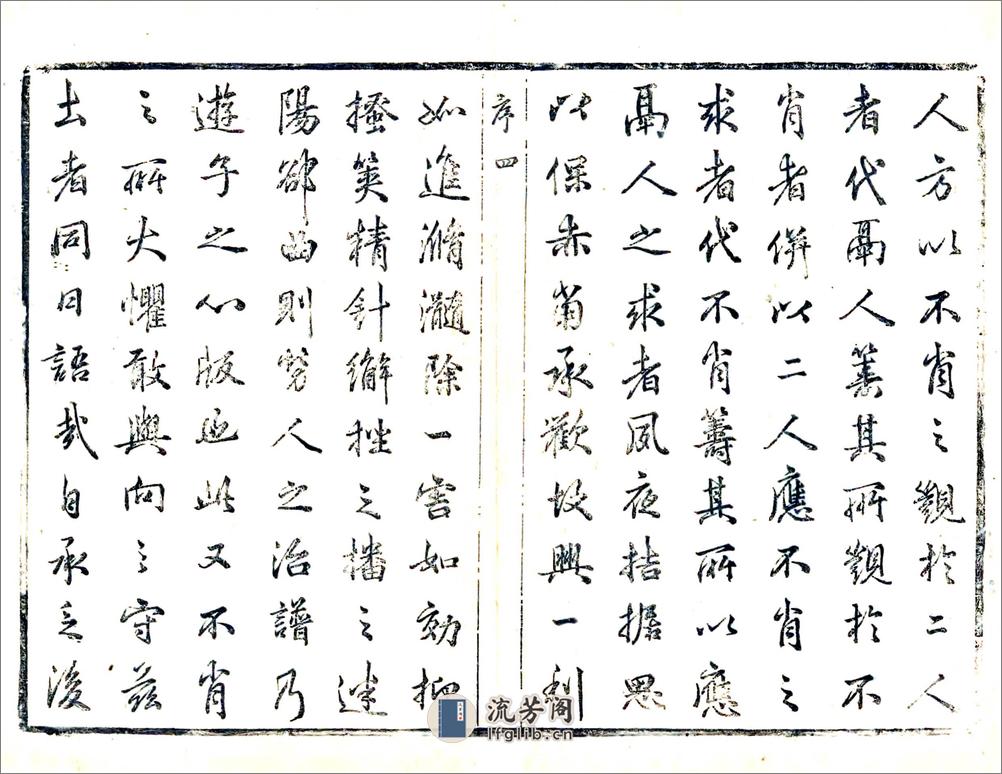 人方以不肖之觀於二人
者代鬲人籌其所觀於不
肖者併以二人應不肖之
求者代不肖籌其所以應
鬲人之求者夙夜拮据思
以保赤當承歡故興一利
序 四
如進滫瀡除一害如効抑
搔筴精針擀挫之播之迷
陽郤曲則勞人之治譜乃
遊子之心版也此又不肖
之所大懼敢與向之守茲
土者同日語哉自承乏後
流芳阁
lfglib.cn